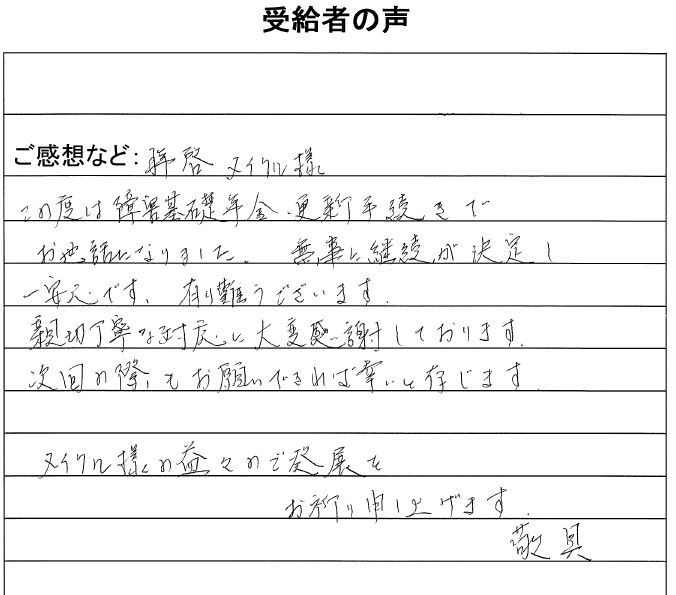 受給者の声
ご感想など: 拝啓 メイクル様
この度は障害基礎年金、更新手続きで
お世話になりました。 無事に継続が決定し
一安心です。 有り難うございます。
親切丁寧な対応に大変感謝しております。
次回の際もお願いできれば幸いと存じます。
メイクル様の益々のご発展を
お祈り申し上げます。
敬具